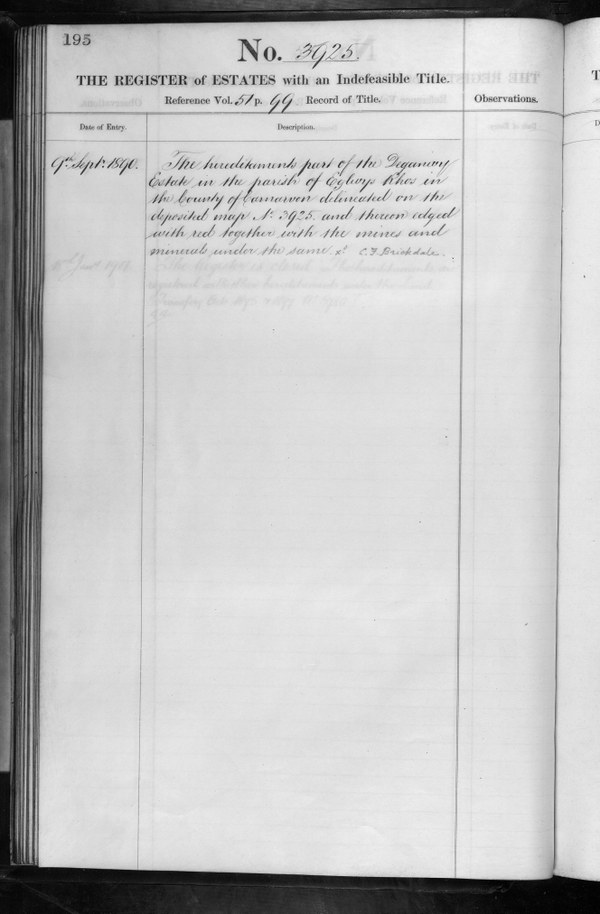 195
No. 3925.
THE REGISTER of ESTATES with an Indefeasible Title.
Reference Vol. 51 p. 99 Record of Title.
Observations.
Date of Entry.
Description.
9th Septr. 1890.
The hereditaments part of the Deganwy
Estate in the parish of Eglwys Rhos in
the County of Carnarvon delineated on the
deposited map No. 3925. and thereon edged
with red together with the mines and
minerals under the same. C. F. Brickdale.
The Register is closed